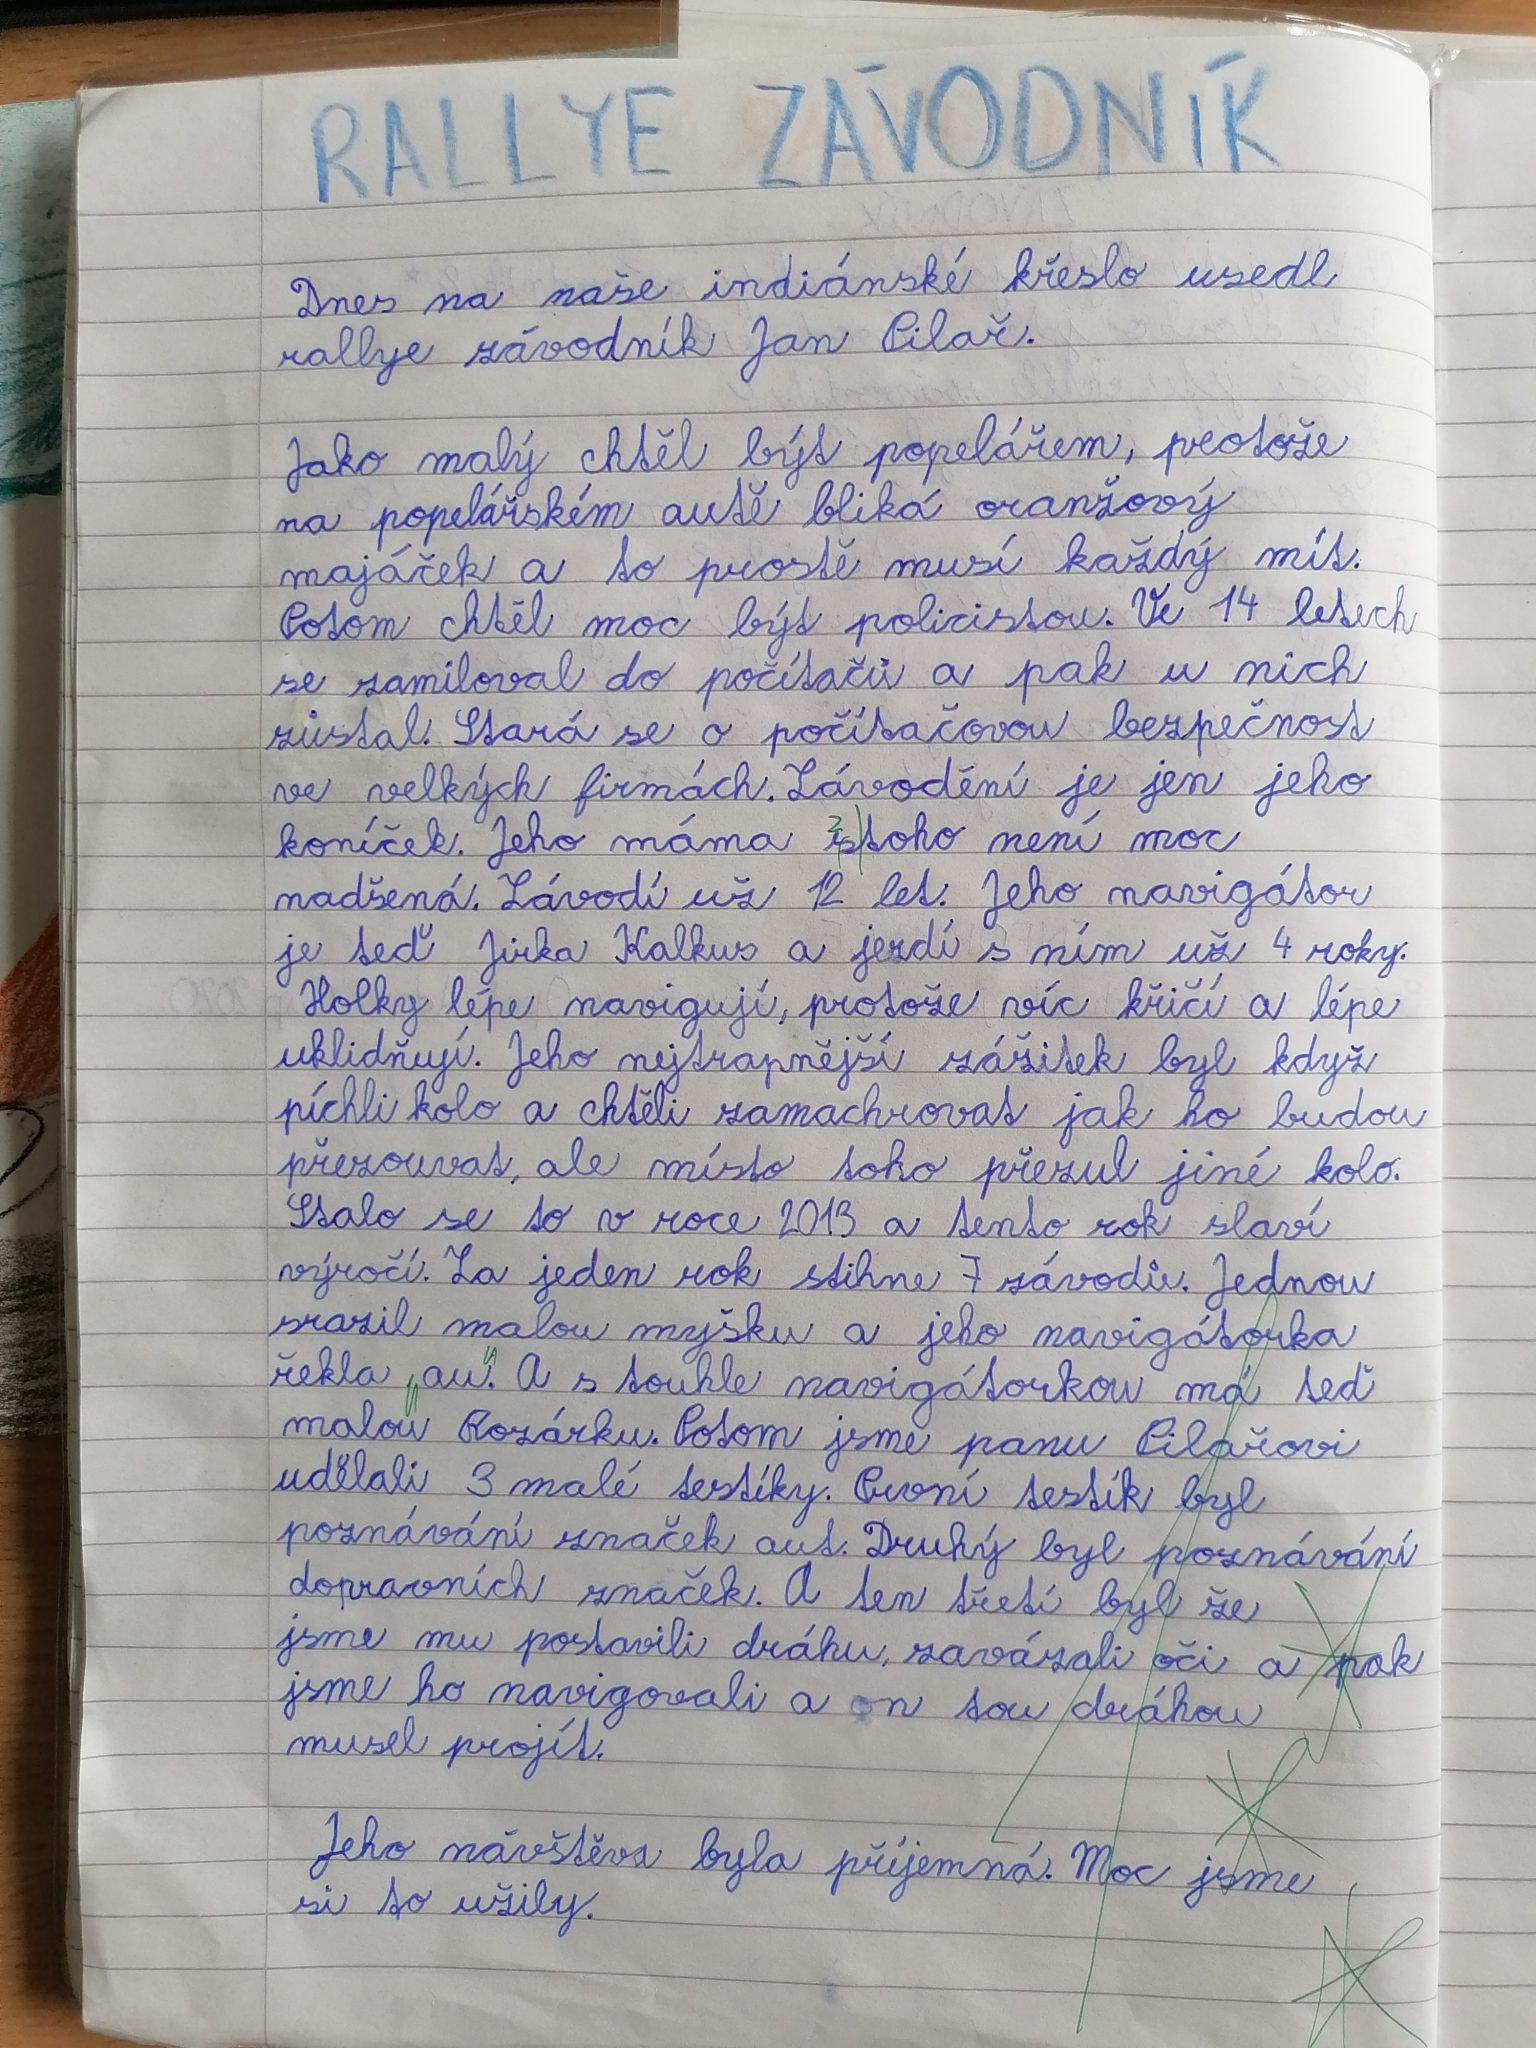 RALLYE ZÁVODNÍK
Dnes na naše indiánské křeslo usedl
rallye závodník Jan Pilař.
Jako malý chtěl být popelářem, protože
na popelářském autě bliká oranžový
majáček a to prostě musí každý mít.
Potom chtěl moc být policistou. Ve 14 letech
se zamiloval do počítačů a pak u nich
zůstal. Stará se o počítačovou bezpečnost
ve velkých firmách. Závodění je jen jeho
koníček. Jeho máma z toho není moc
nadšená. Závodí už 12 let. Jeho navigátor
je teď Jirka Kalkus a jezdí s ním už 4 roky.
Holky lépe navigují, protože víc křičí a lépe
uklidňují. Jeho nejtrapnější zážitek byl když
píchli kolo a chtěli zamachrovat jak ho budou
přezouvat, ale místo toho přezul jiné kolo.
Stalo se to v roce 2013 a tento rok slaví
výročí. Za jeden rok stihne 7 závodů. Jednou
srazil malou myšku a jeho navigátorka
řekla „au“. A s touhle navigátorkou má teď
malou Rozárku. Potom jsme panu Pilařovi
udělali 3 malé testíky. První testík byl
poznávání značek aut. Druhý byl poznávání
dopravních značek. A ten třetí byl že
jsme mu postavili dráhu, zavázali oči a pak
jsme ho navigovali a on tou dráhou
musel projít.
Jeho návštěva byla příjemná. Moc jsme
si to užily.